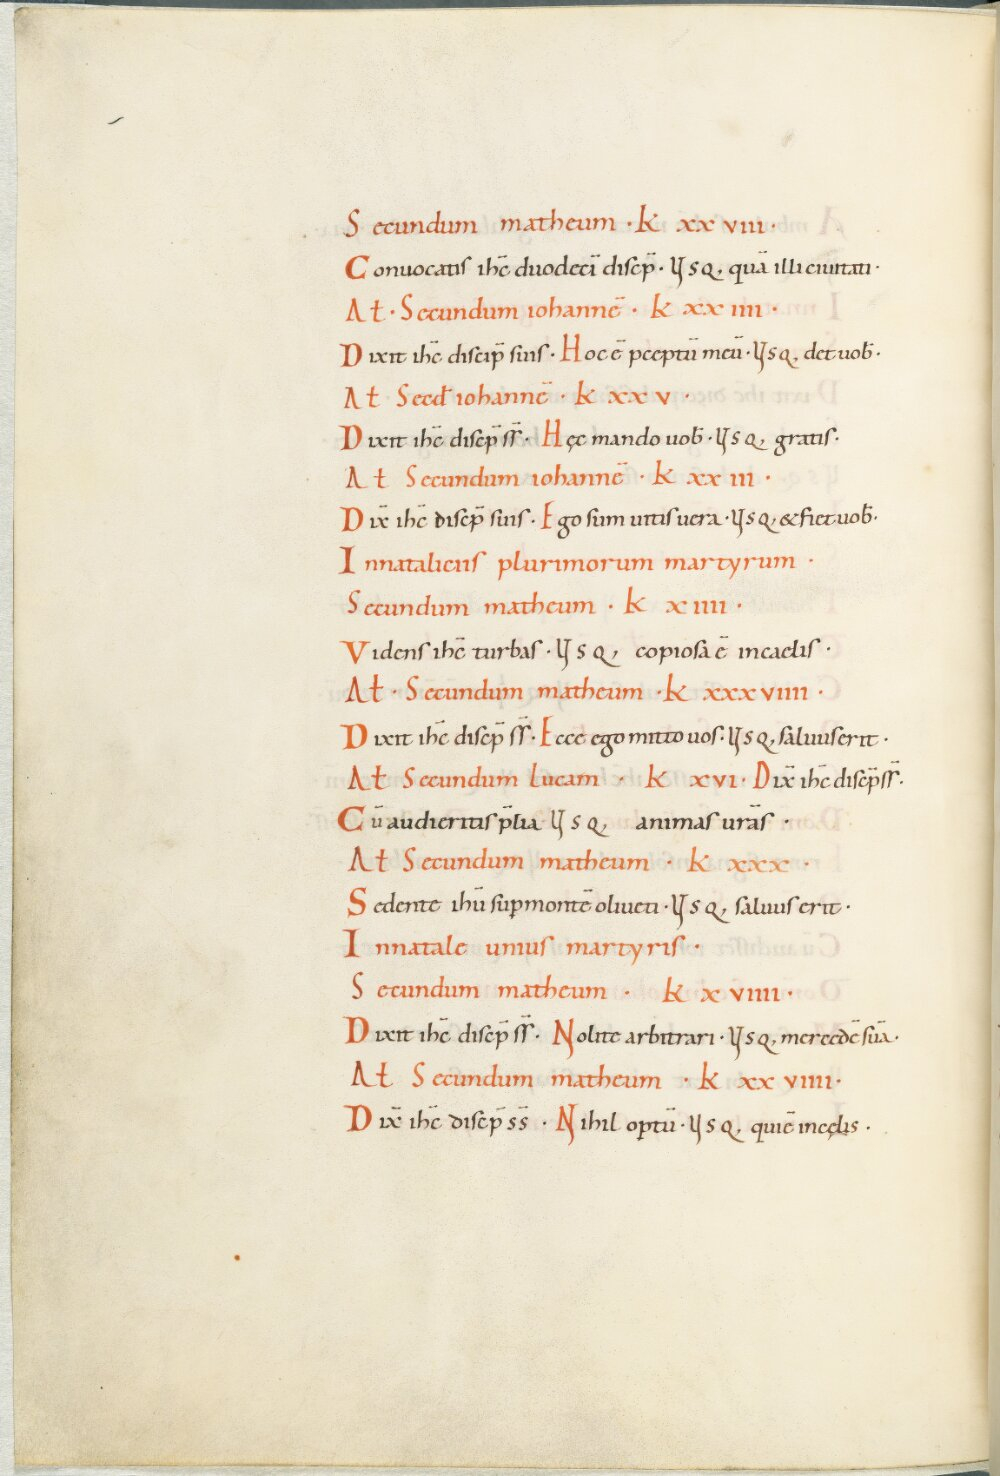 Secundum matheum · k xxviii ·
Conuocatis ihc̄ duodecī discip̄ · Usq, quā illi ciuitati ·
At · Secundum iohannē · k xxiiii ·
Dixit ihc̄ discip̄ suis · Hoc ē pceptū meū · Usq, det uob̄ ·
At Secd̄ iohannē · k xxv ·
Dixit ihc̄ discip̄ ss̄ · Hęc mando uob̄ · Usq, gratis ·
At Secundum iohannē · k xxiii ·
Dix̄ ihc̄ discip̄ suis · Ego sum uitis uera · Usq, & fiet uob̄ ·
In nataliciis plurimorum martyrum ·
Secundum matheum · k xiiii ·
Videns ihc̄ turbas · Usq, copiosa ē in caelis ·
At · Secundum matheum · k xxxviiii ·
Dixit ihc̄ discip̄ ss̄ · Ecce ego mitto uos · Usq, saluus erit ·
At Secundum Lucam · k xvi · Dix̄ ihc̄ discip̄ ss̄ ·
Cū audieritis p̄lia Usq, animas urās ·
At Secundum matheum · k xxx ·
Sedente ihū sup montē oliueti · Usq, saluus erit ·
In natale unius martyris ·
Secundum matheum · k xviiii ·
Dixit ihc̄ discip̄ ss̄ · Nolite arbitrari · Usq, mercedē suā ·
At Secundum matheum · k xxviiii ·
Dix̄ ihc̄ discip̄ ss̄ · Nihil optū · Usq, qui ē in cęlis ·